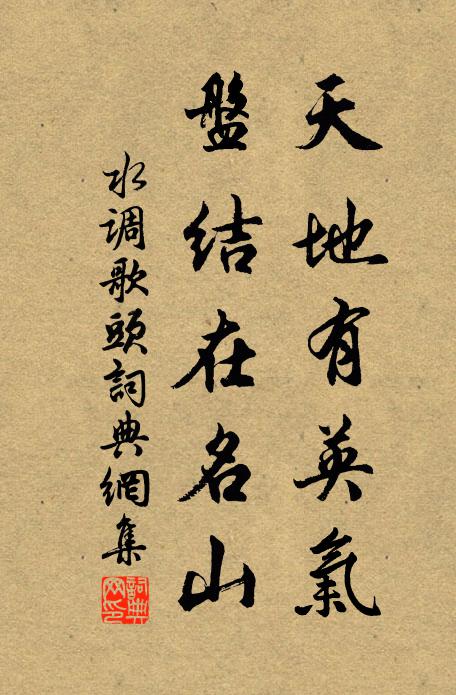 天地有英氣
盤結在名山
水調歌頭詞典網集
詞典网印